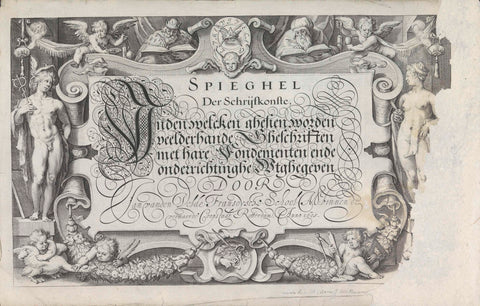 SPIEGHEL
Der Schrijfkonste,
Inden welcken ghesien worden
veelderhande Gheschriften
met hare Fondementen ende
onderrichtinghe Wtghegeven
DOOR
Jan vanden Velde Fransoysche School
Rotterdam Anno 1605